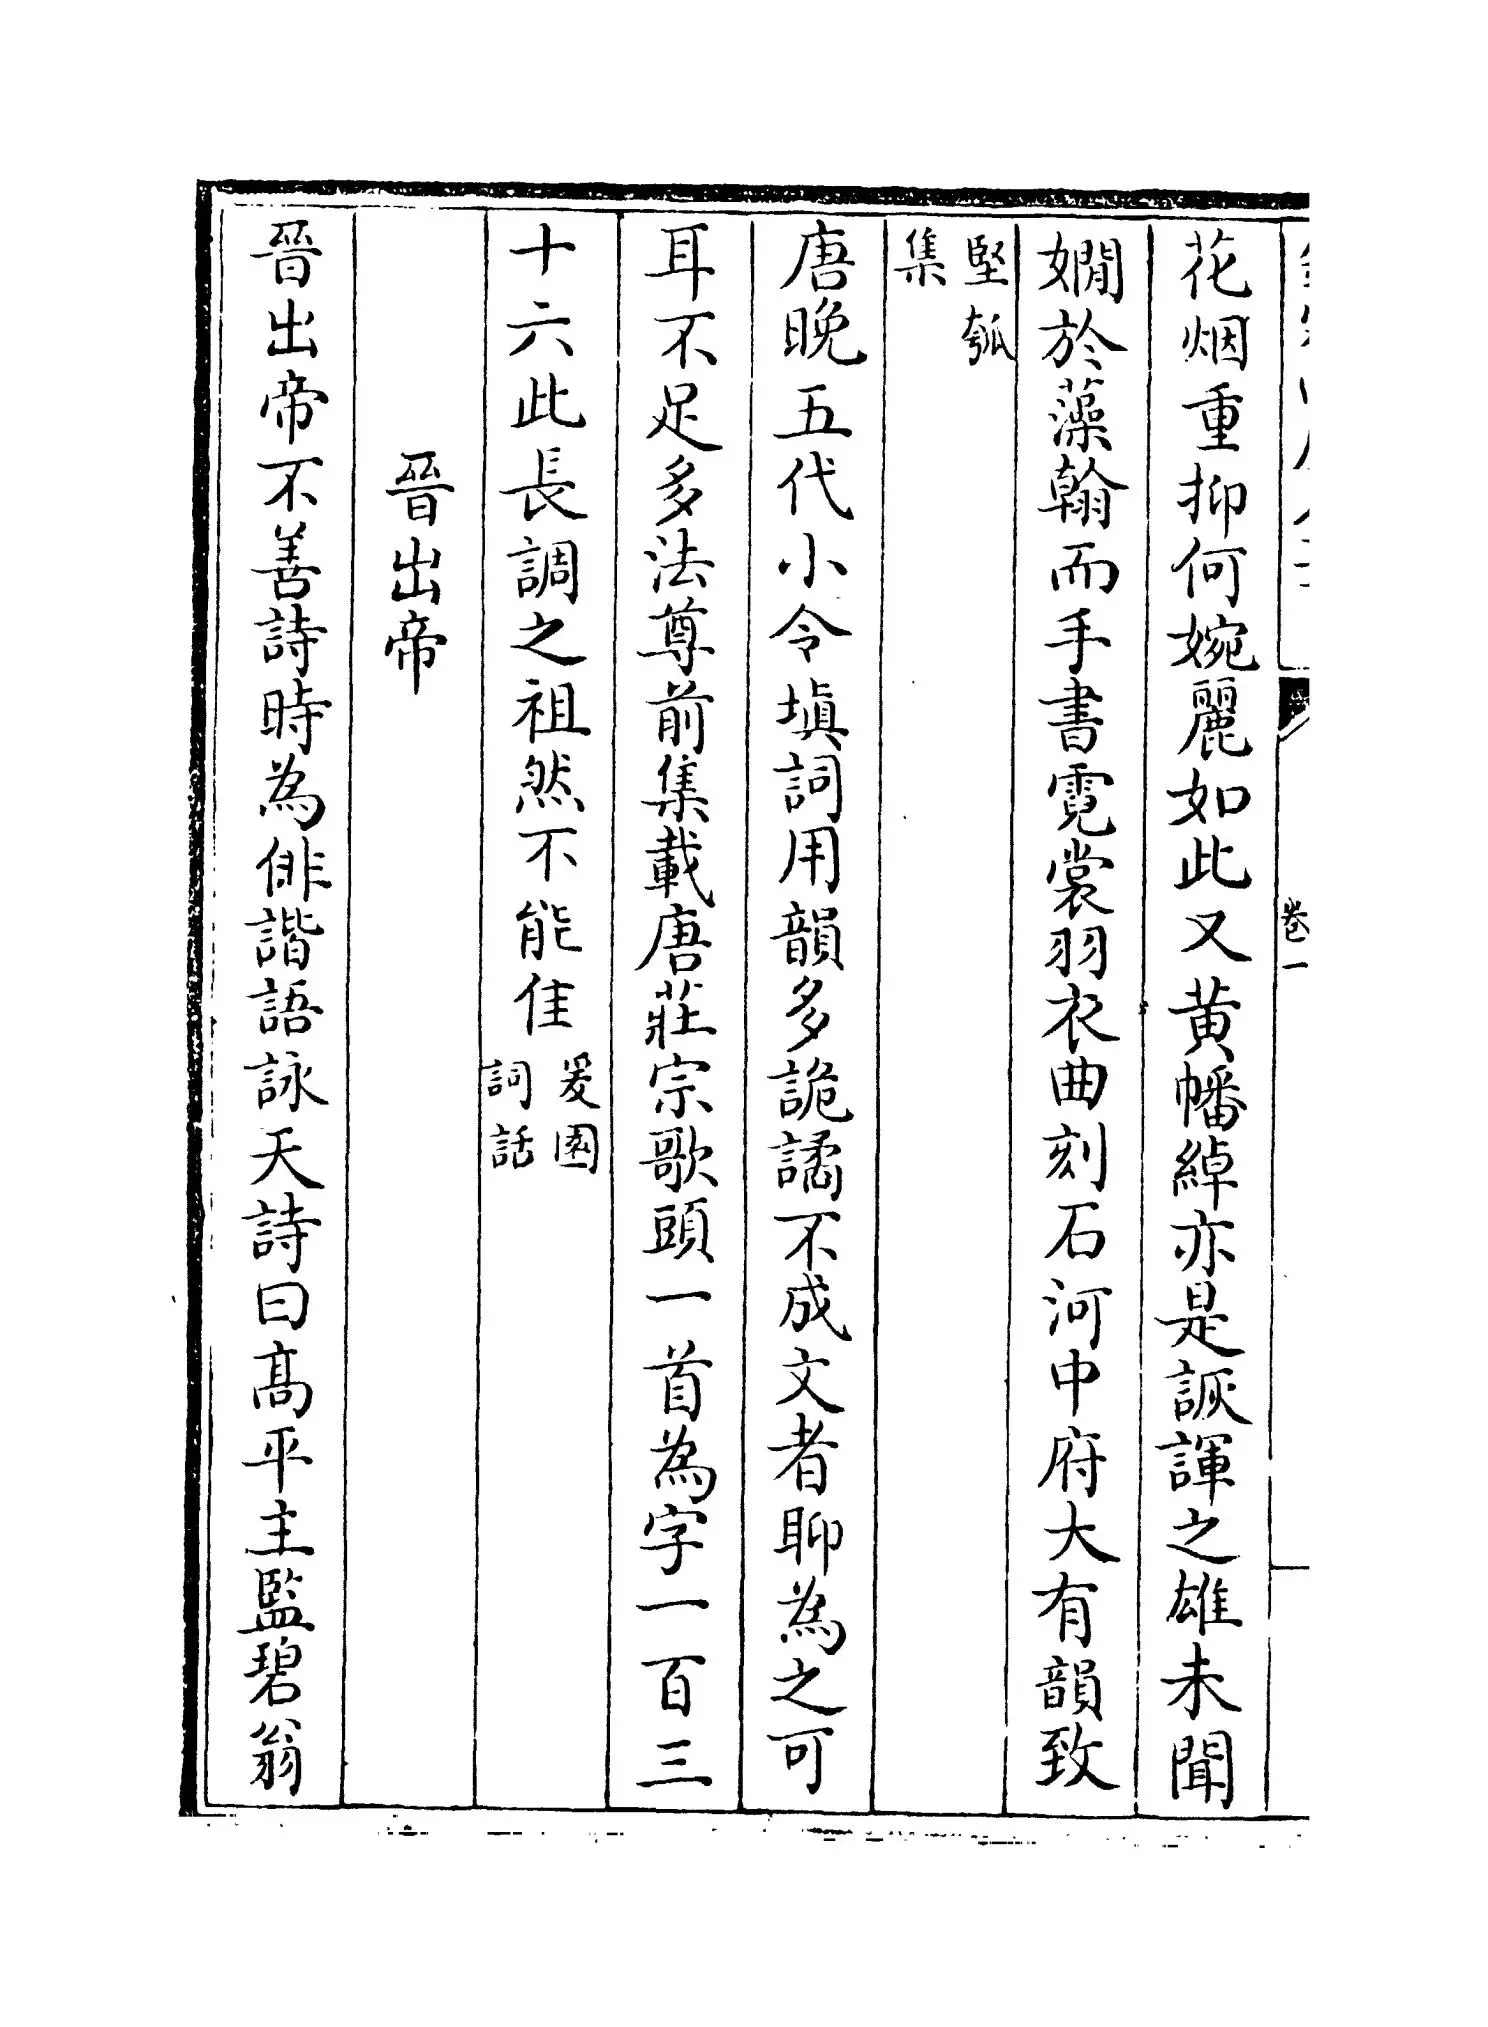 卷一
花烟重抑何婉麗如此又黄幡綽亦是詼諢之雄未聞
嫺於藻翰而手書霓裳羽衣曲刻石河中府大有韻致
堅瓠
集
唐晚五代小令填詞用韻多詭譎不成文者聊為之可
耳不足多法尊前集載唐莊宗歌頭一首為字一百三
十六此長調之祖然不能佳爰園
詞話
晉出帝
晉出帝不善詩時為俳諧語詠天詩曰髙平主監碧翁